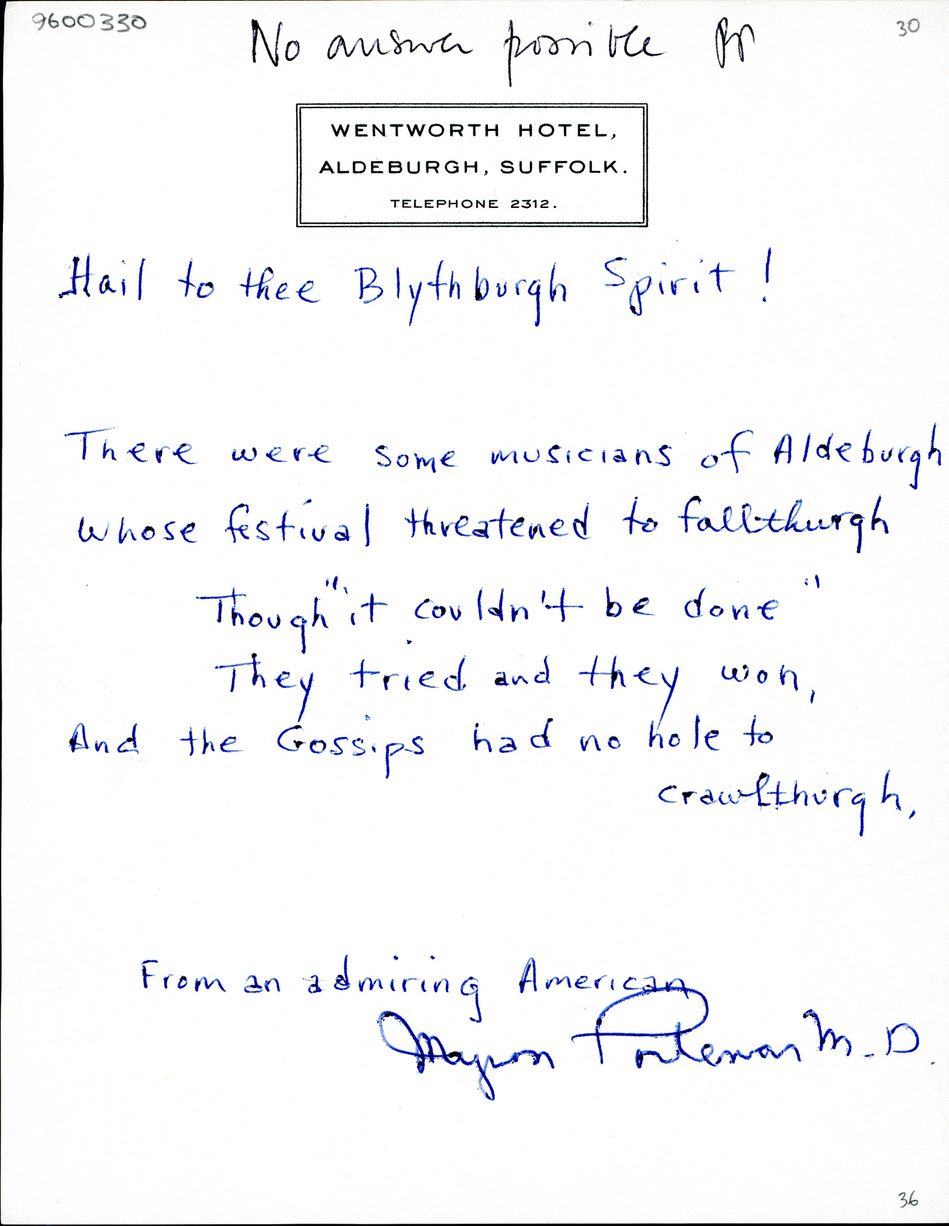 9600330
30
No answer possible
WENTWORTH HOTEL,
ALDEBURGH, SUFFOLK.
TELEPHONE 2312.
Hail to thee Blythburgh Spirit!
There were some musicians of Aldeburgh
Whose festival threatened to fallthurgh
Though "it couldn't be done"
They tried and they won,
And the Gossips had no hole to
crawlthurgh,
From an admiring American
M.D.
36